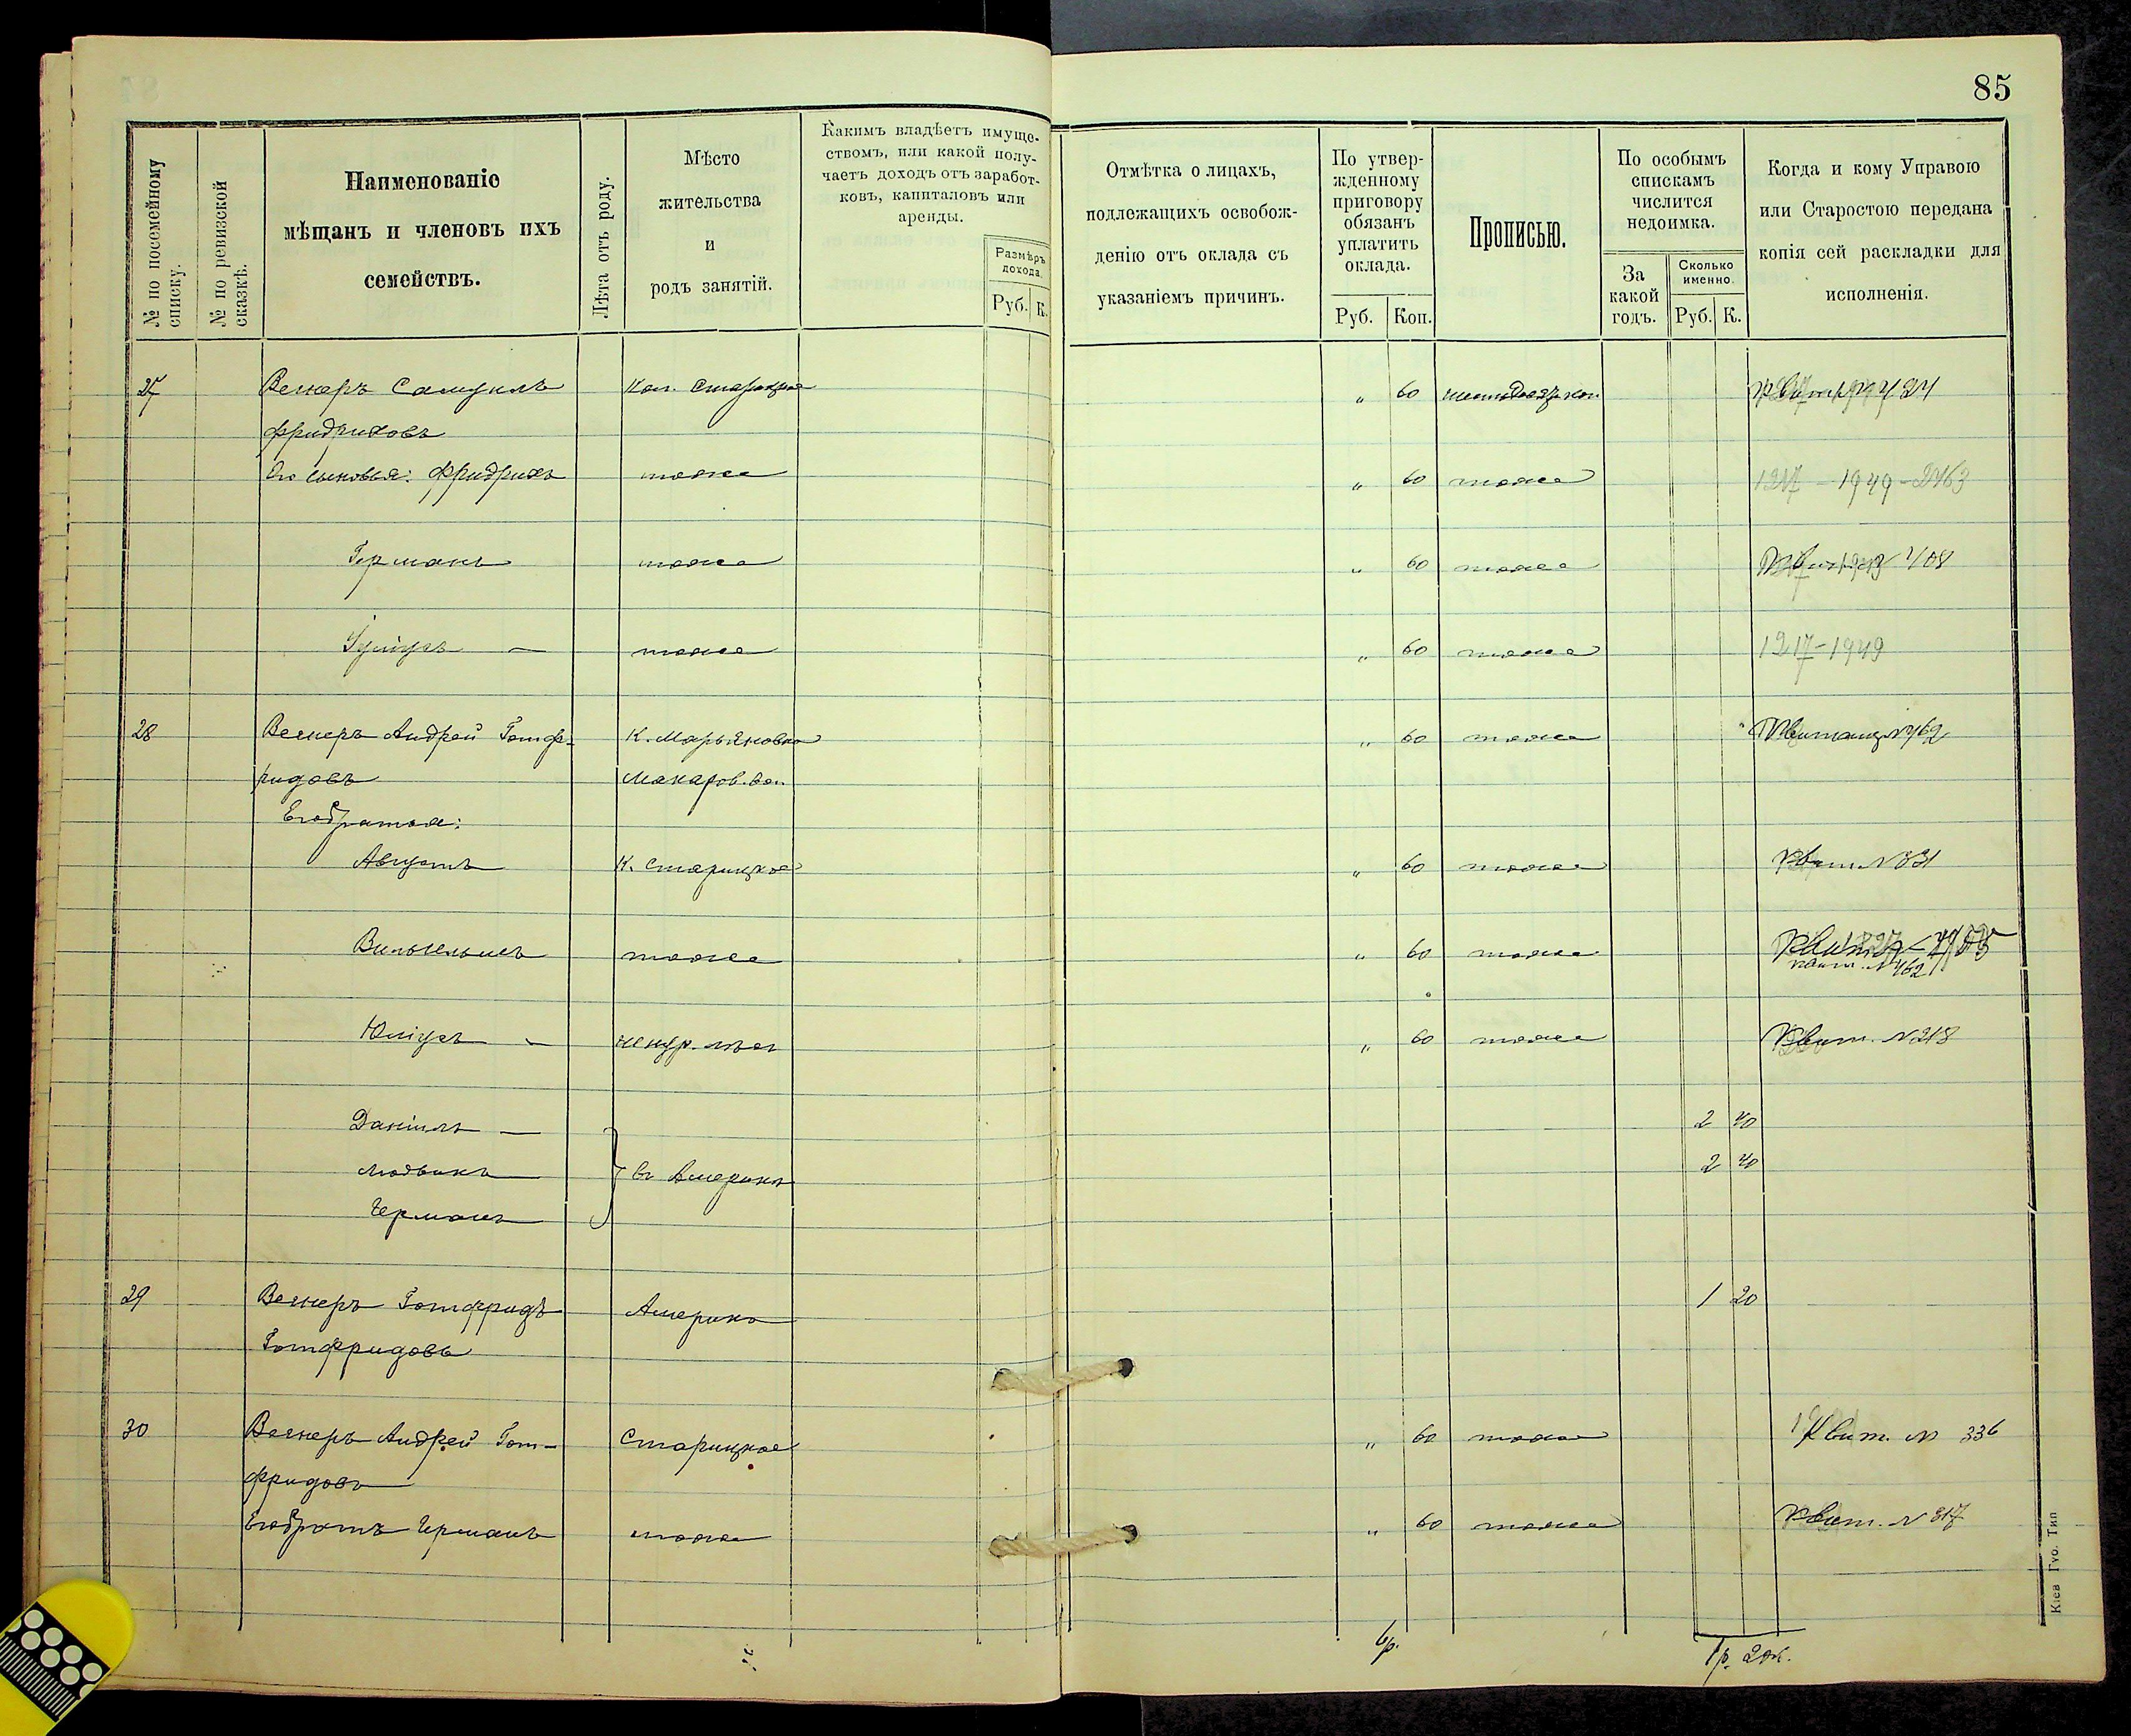 85
№ по посемейному списку.
№ по ревизской сказкѣ.
Наименованіе
мѣщанъ и членовъ ихъ
семействъ.
Лѣта отъ роду.
Мѣсто
жительства
и
родъ занятій.
Какимъ владѣетъ имуще-
ствомъ, или какой полу-
чаетъ доходъ отъ заработ-
ковъ, капиталовъ или
аренды.
Размѣръ
дохода.
Руб. К.
Отмѣтка о лицахъ,
подлежащихъ освобож-
денію отъ оклада съ
указаніемъ причинъ.
По утвер-
жденному
приговору
обязанъ
уплатить
оклада.
Руб. Коп.
Прописью.
По особымъ
спискамъ
числится
недоимка.
За
какой
годъ.
Сколько
именно.
Руб. К.
Когда и кому Управою
или Старостою передана
копія сей раскладки для
исполненія.
27 Вегнеръ Самуилъ Кол. Старицкое " 60
Фридриховъ
Его сыновья: Фридрихъ тоже " 60 тоже 1217 - 1949 - 2463
Германъ тоже " 60 тоже
тоже " 60 тоже 1217-1949
28 Вегнеръ Андрей Готф- К. Марьяновка " 60 тоже
ридовъ Макаров. вол.
Его братья:
Августъ К. Старицкое " 60 тоже Квит. № 331
Вильгельмъ тоже " 60 тоже
квит. № 462
Юліусъ - " 60 тоже Квит. № 218
Даніилъ - 2 40
Людвикъ въ Америкѣ 2 40
Германъ
29 Вегнеръ Готфридъ Америка 1 20
Готфридовъ
30 Вегнеръ Андрей Гот- Старицкое " 60 тоже Квит. № 336
фридовъ
Его братъ Германъ тоже " 60 тоже Квит. № 317
6р. 1р. 20к.
Кіев Губ. Тип